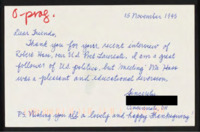 O-prog.
15 November 1995
Dear Friends,
Thank you for your recent interview of
Robert Hass, our U.S. Poet Laureate. I am a great
follower of US politics, but meeting Mr Hass
was a pleasant and educational diversion.
Sincerely
P.S. Wishing you all a lovely and happy Thanksgiving